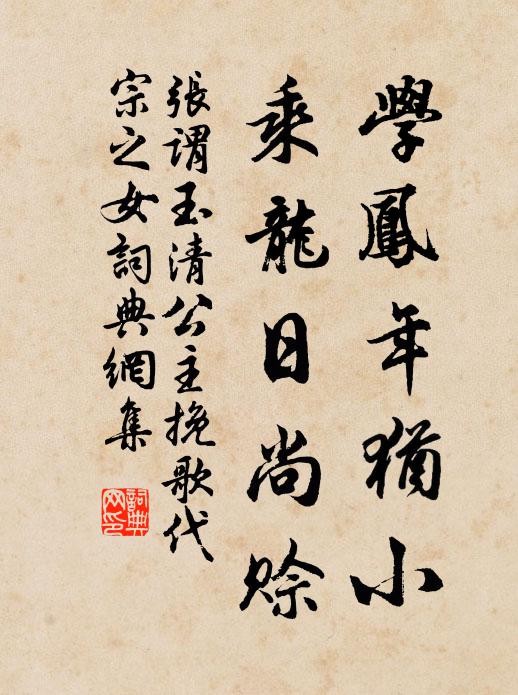 學鳳年猶小
乘龍日尚賒
張謂玉清公主挽歌代
宗之女詞典網集
詞典網印